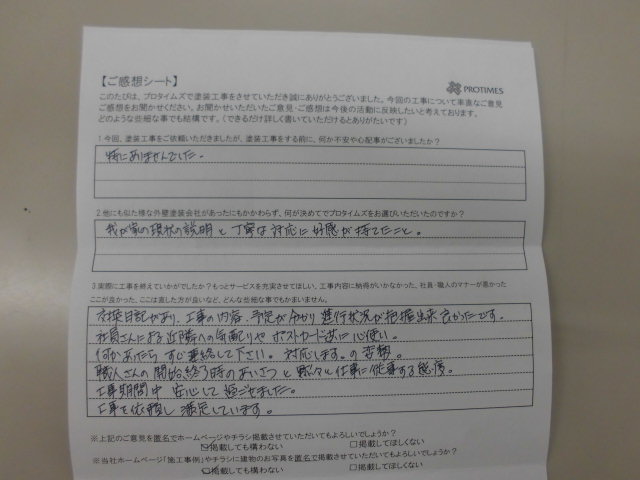 【ご感想シート】
PROTIMES
このたびは、プロタイムズで塗装工事をさせていただき誠にありがとうございました。今回の工事について率直なご意見
ご感想をお聞かせください。お聞かせいただいたご意見・ご感想は今後の活動に反映したいと考えております。
どのような些細な事でも結構です。（できるだけ詳しく書いていただけるとありがたいです）
1 今回、塗装工事をご依頼いただきましたが、塗装工事をする前に、何か不安や心配事がございましたか？
特にありませんでした。
2 他にも似た様な外壁塗装会社があったにもかかわらず、何が決めてでプロタイムズをお選びいただいたのですか？
我が家の現状の説明と丁寧な対応に好感が持てたこと。
3 実際に工事を終えていかがでしたか？もっとサービスを充実させてほしい、工事内容に納得がいかなかった、社員・職人のマナーが悪かった
ここが良かった、ここは直した方が良いなど、どんな些細な事でもかまいません。
日記があり、工事の内容、予定が分かり進行状況が把握出来良かったです。
社員さんによる近隣への気配りやポストカード等に心使い。
何かあったらすぐ連絡して下さい。対応します。の姿勢。
職人さんの開始、終了時のあいさつと黙々と仕事に従事する態度。
工事期間中安心して過ごせました。
工事を依頼し満足しています。
※上記のご意見を匿名でホームページやチラシ掲載させていただいてもよろしいでしょうか？
☑掲載しても構わない □掲載してほしくない
※当社ホームページ「施工事例」やチラシに建物のお写真を匿名で掲載させていただいてもよろしいでしょうか？
☑掲載しても構わない □掲載してほしくない